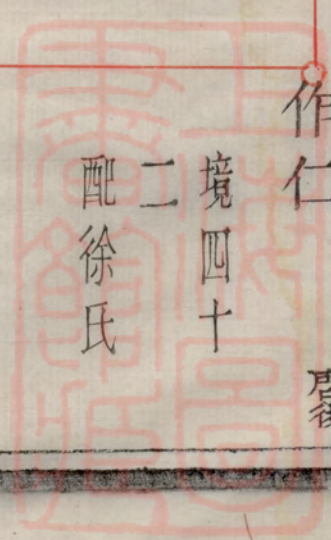 作仁
境四十
二
配徐氏
啓後